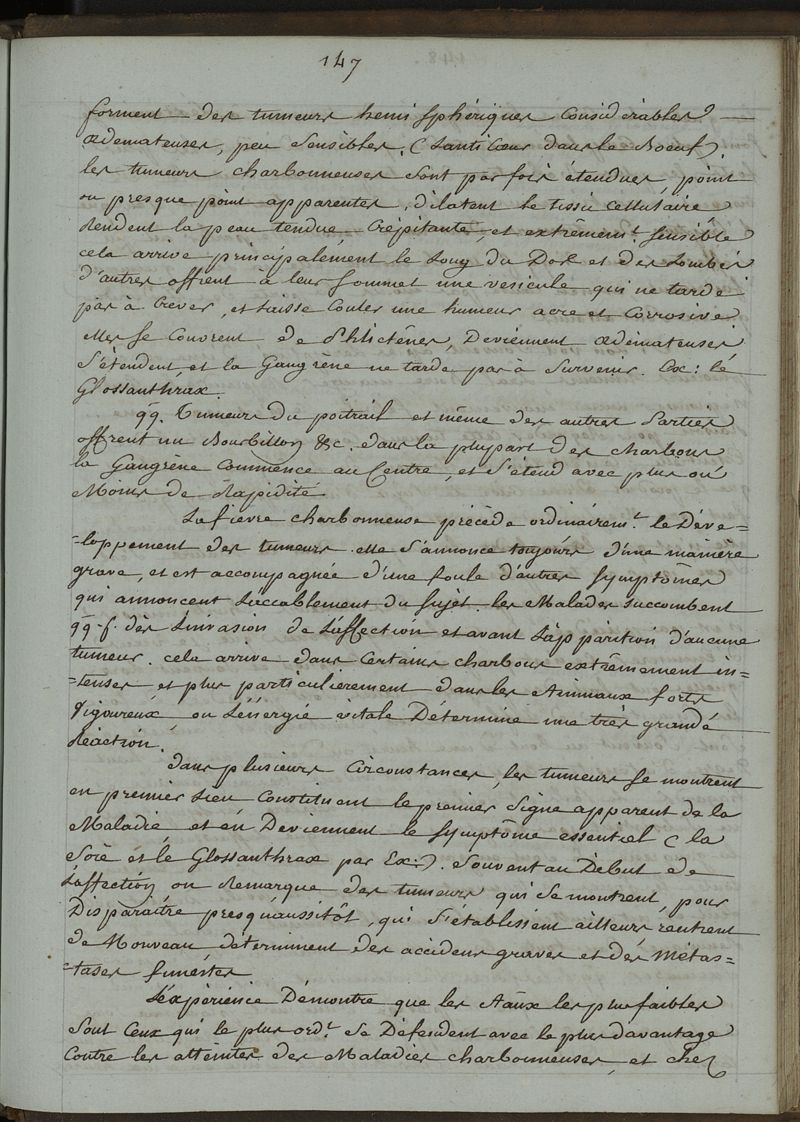 147
forment des tumeurs hemi sphériques Considérables
œdemateuses, peu Sensibles. (Lanti Cœur dans le Bœuf).
les tumeurs charbonneuses sont par fois étendues, point
ou presque point apparentes, dilatent le tissu cellulaire
Rendent la peau tendue Crépitante, et extrêmemt. Sensible
cela arrive principalement le Long du Dos et des Lombes
d'autres offrent à leur sommet une vesicule qui ne tarde
pas à Crever, et Laisse Couler une humeur acre et Corrosive
elles se Couvrent de Phlictênes, Deviennent œdémateuses
S'étendent, et la Gangrène ne tarde pas à Survenir. Ex: le
Glossanthrax.
qq. Tumeurs du poitrail et même des autres Parties
offrent un Bourbillon &c. dans la plupart des charbons
la Gangrène Commence au Centre, et S'étend avec plus ou
Moins de Rapidité
La fievre charbonneuse précède ordinairemt. le Déve=
=loppement des tumeurs. elle S'annonce toujours d'une manière
grave, et est accompagnée d'une foule d'autres Symptômes
qui annoncent Laccablement du Sujet. les Malades Succombent
qq.f. dès L'invasion de L'affection et avant L'apparition d'aucune
tumeur. cela arrive dans Certains charbons extrêmement in=
=tenses, et plus particulierement dans les Animaux forts
Vigoureux, ou L'énergie vitale Détermine une très grande
Réaction.
dans plusieurs Circonstances, les tumeurs se montrent
en premier Lieu Constituent le premier Signe apparent de la
Maladie, et en Deviennent le Symptôme essentiel (la
Soie et le Glossanthrax par Ex:). Souvent au Début de
L'affection on Remarque des tumeurs qui Se montrent, pour
Disparaitre presqu'aussitôt, qui S'établissent ailleurs rentrent
de Nouveau, determinent des accidens graves et des Métas=
=tases funestes
L'éxpérience Démontre que les Aãux les plus faibles
Sont Ceux qui le plus ordt. Se Défendent avec le plus davantage
Contre les atteintes des Maladies charbonneuses, et chez